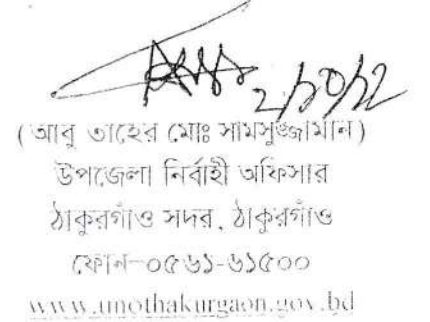 2/10/22
(আবু তাহের মোঃ সামসুজ্জামান)
উপজেলা নির্বাহী অফিসার
ঠাকুরগাঁও সদর, ঠাকুরগাঁও
ফোন-০৫৬১-৬১৫০০
www.unothakurgaon.gov.bd